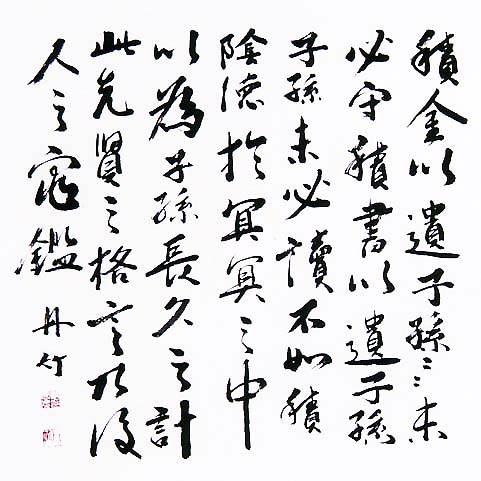 積金以遺子孫〻〻未
必守積書以遺子孫
子孫未必讀不如積
陰德於冥冥之中
以為子孫長久之計
此先賢之格言乃後
人之龜鑑
丹竹